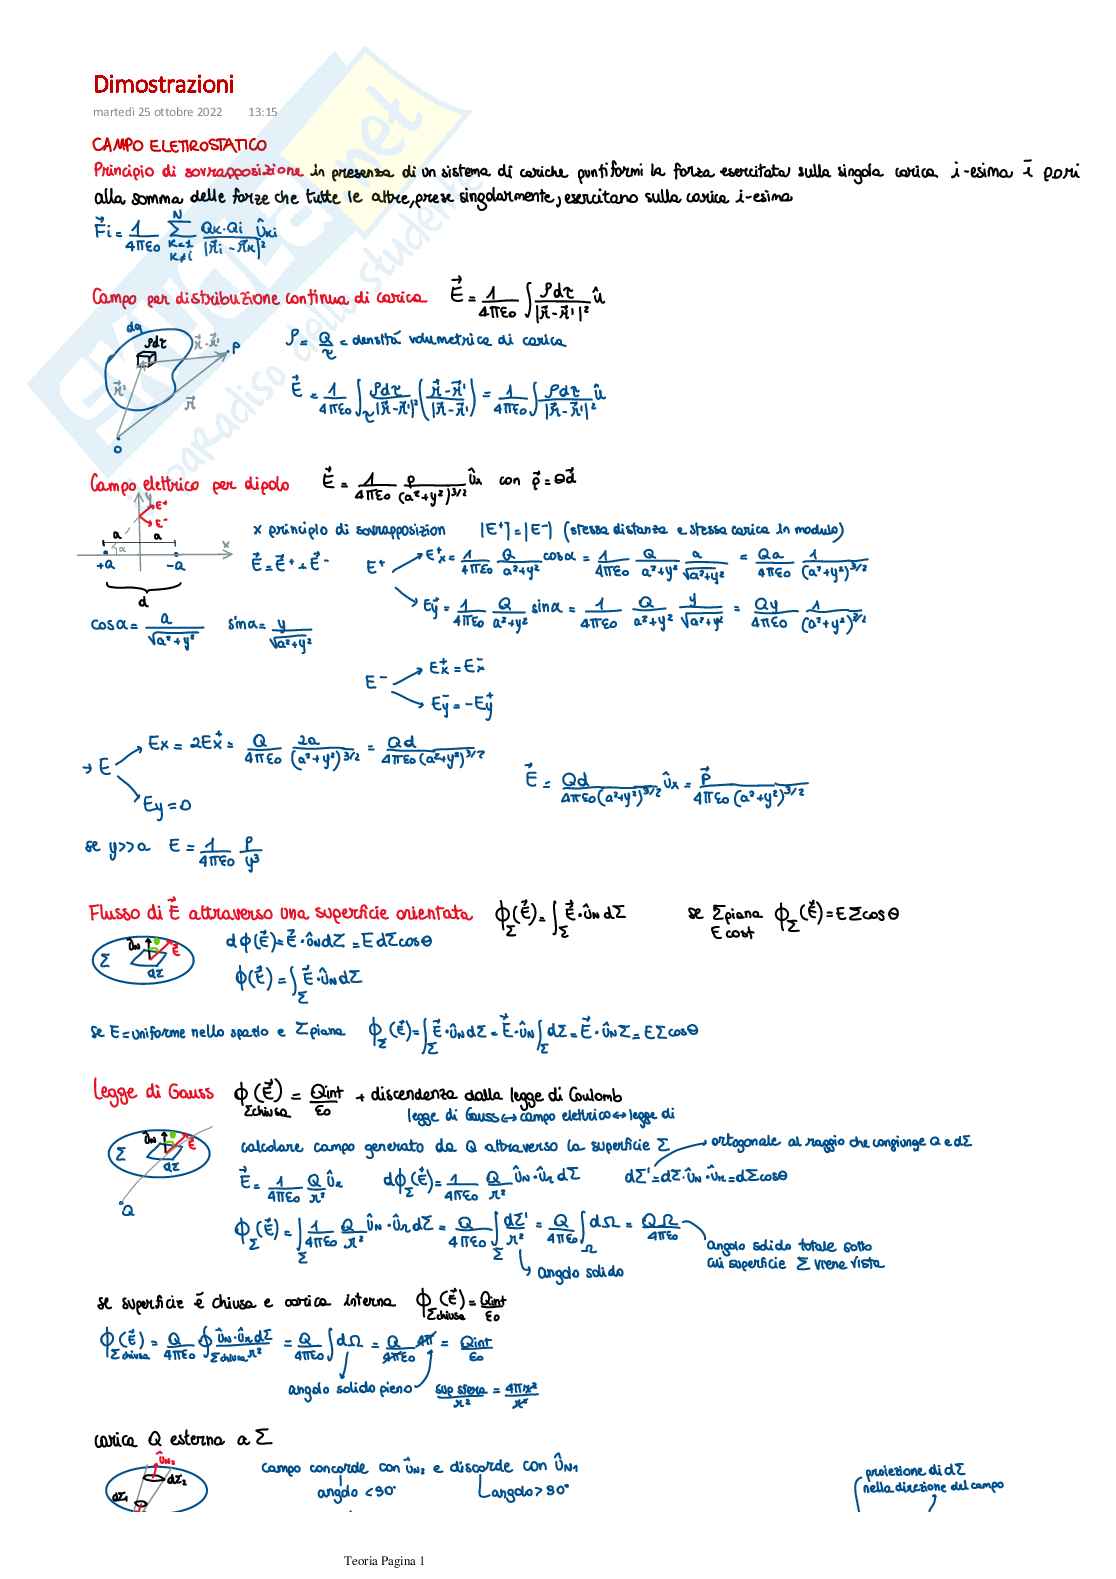 Dimostrazioni
martedì 25 ottobre 2022 13:15
CAMPO ELETTROSTATICO
Principio di sovrapposizione in presenza di un sistema di cariche puntiformi la forza esercitata sulla singola carica i-esima è pari
alla somma delle forze che tutte le altre, prese singolarmente, esercitano sulla carica i-esima
F⃗i = 1/4πε0 Σ N K=1 K≠i QK·Qi/|r⃗i - r⃗K|² ûKi
Campo per distribuzione continua di carica E⃗ = 1/4πε0 ∫ ρdτ/|r⃗-r⃗'|² û
dq ρdτ r⃗-r⃗' P r⃗' r⃗ O
ρ = Q/τ = densità volumetrica di carica
E⃗ = 1/4πε0 ∫τ ρdτ/|r⃗-r⃗'|² (r⃗-r⃗'/|r⃗-r⃗'|) = 1/4πε0 ∫ ρdτ/|r⃗-r⃗'|² û
Campo elettrico per dipolo E⃗ = 1/4πε0 p/(a²+y²)^3/2 ûx con p⃗ = Qd⃗
y E+ E- a a α x +Q -Q d
x principio di sovrapposizion |E+|=|E-| (stessa distanza e stessa carica in modulo)
E⃗ = E⃗+ + E⃗- E+ Ex+ = 1/4πε0 Q/a²+y² cosα = 1/4πε0 Q/a²+y² a/√a²+y² = Qa/4πε0 1/(a²+y²)^3/2
Ey+ = 1/4πε0 Q/a²+y² sinα = 1/4πε0 Q/a²+y² y/√a²+y² = Qy/4πε0 1/(a²+y²)^3/2
cosα = a/√a²+y² sinα = y/√a²+y²
E- Ex+ = Ex-
Ey- = -Ey+
→ E Ex = 2Ex+ = Q/4πε0 2a/(a²+y²)^3/2 = Qd/4πε0(a²+y²)^3/2
Ey = 0
E⃗ = Qd/4πε0(a²+y²)^3/2 ûx = p⃗/4πε0(a²+y²)^3/2
se y>>a E = 1/4πε0 p/y³
Flusso di E⃗ attraverso una superficie orientata ΦΣ(E⃗) = ∫Σ E⃗·ûN dΣ se Σ piana E cost ΦΣ(E⃗) = EΣcosθ
ûN θ E⃗ Σ dΣ
dΦ(E⃗) = E⃗·ûNdΣ = EdΣcosθ
Φ(E⃗) = ∫Σ E⃗·ûNdΣ
se E=uniforme nello spazio e Σ piana ΦΣ(E⃗) = ∫Σ E⃗·ûNdΣ = E⃗·ûN ∫Σ dΣ = E⃗·ûNΣ = EΣcosθ
Legge di Gauss ΦΣchiusa(E⃗) = Qint/ε0 → discendenza dalla legge di Coulomb
legge di Gauss ↔ campo elettrico ↔ legge di
ûN θ E⃗ Σ dΣ Q
calcolare campo generato da Q attraverso la superficie Σ → ortogonale al raggio che congiunge Q e dΣ
E⃗ = 1/4πε0 Q/r² ûr dΦΣ(E⃗) = 1/4πε0 Q/r² ûN·ûr dΣ dΣ' = dΣ·ûN·ûr = dΣcosθ
ΦΣ(E⃗) = ∫Σ 1/4πε0 Q/r² ûN·ûrdΣ = Q/4πε0 ∫Σ dΣ'/r² = Q/4πε0 ∫Ω dΩ = QΩ/4πε0
angolo solido
angolo solido totale sotto
cui superficie Σ viene vista
se superficie è chiusa e carica interna ΦΣchiusa(E⃗) = Qint/ε0
ΦΣchiusa(E⃗) = Q/4πε0 ∮Σchiusa ûN·ûrdΣ/r² = Q/4πε0 ∫dΩ = Q/4πε0 4π = Qint/ε0
angolo solido pieno sup sfera/r² = 4πr²/r²
carica Q esterna a Σ
ûN2 dΣ2 dΣ1
campo concorde con ûN2 e discorde con ûN1
angolo <90° angolo >90°
proiezione di dΣ
nella direzione del campo
Teoria Pagina 1
SKUOLA.net
paradiso dello studente